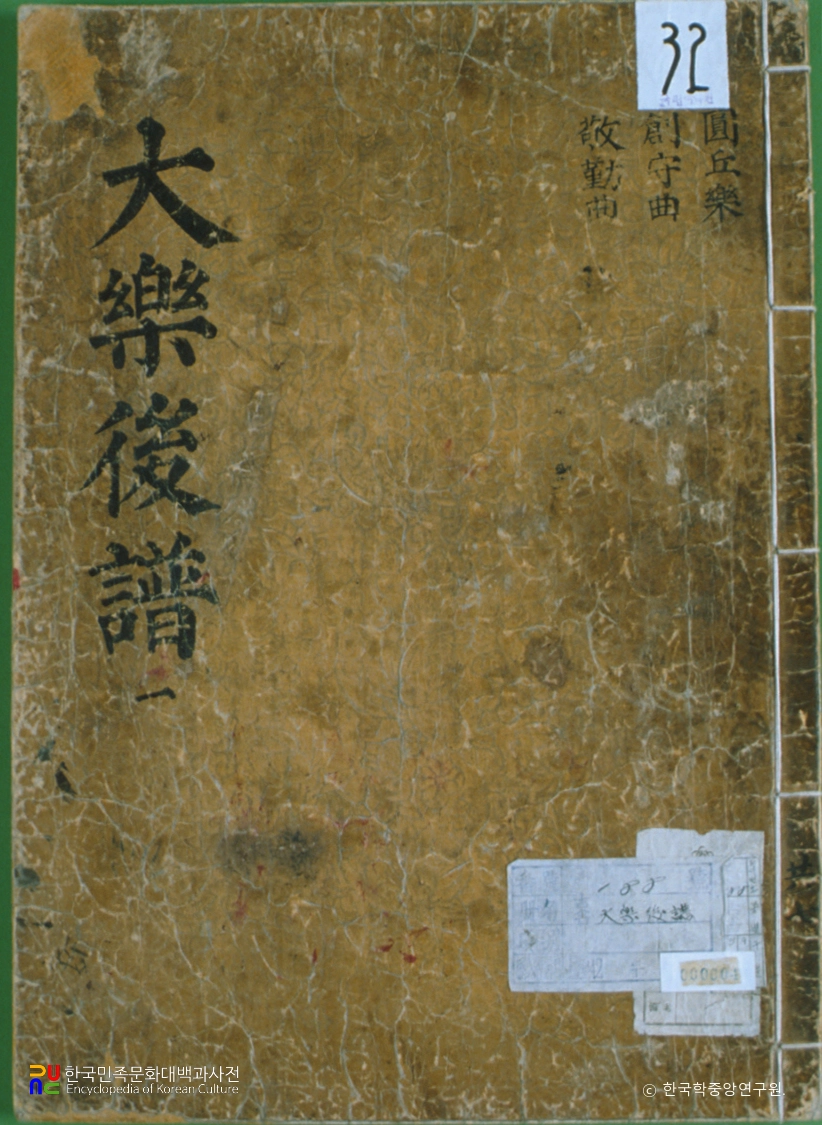 32
圓丘樂
創守曲
敬勤曲
大樂後譜 一
188
大樂後譜
한국민족문화대백과사전
Encyclopedia of Korean Culture
ⓒ 한국학중앙연구원.